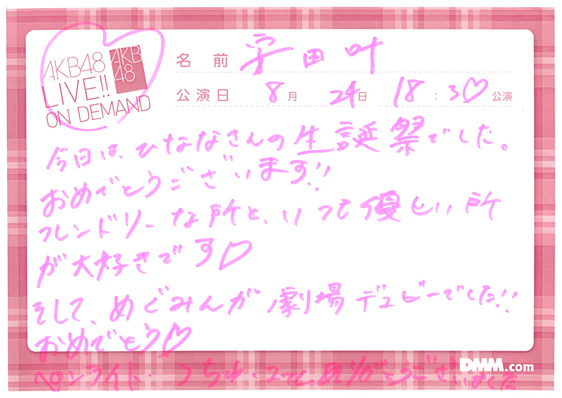 AKB48
LIVE!!
ON DEMAND
AKB
48
名前 平田叶
公演日 8月 24日 18:30公演
今日は、ひななさんの生誕祭でした。
おめでとうございます!!
フレンドリーな所と、いつも優しい所
が大好きです♡
そして、めぐみんが劇場デビューでした!!
おめでとう♡
ペンライト・うちわ・ありがとうございました
DMM.com